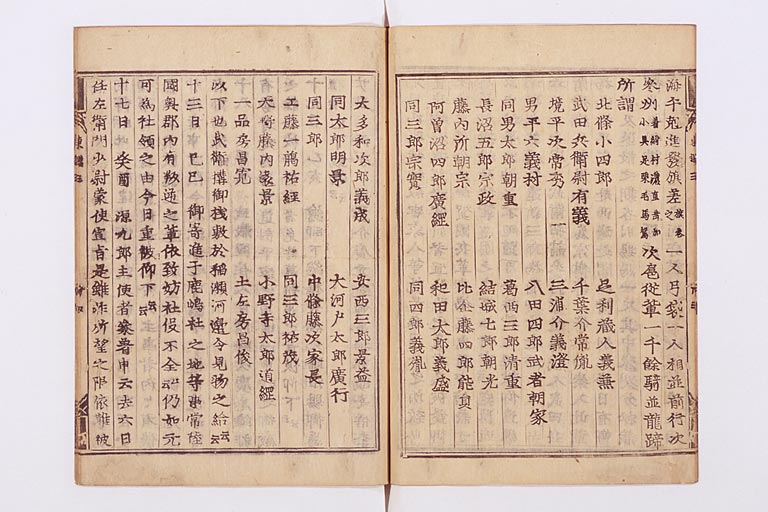 海千尅進發旗差之旗卷一人弓袋一人相並前行次
參州着紺村濃直垂加小具足栗毛馬駕次扈從輩一千餘騎並龍蹄
所謂
北條小四郎 足利藏人義兼
武田兵衛尉有義 千葉介常胤
境平次常秀 三浦介義澄
男平六義村 八田四郎武者朝家
同男太郎朝重 葛西三郎清重
長沼五郎宗政 結城七郎朝光
藤內所朝宗 比企藤四郎能員
阿曾沼四郎廣經 和田太郎義盛
同三郎宗實 同四郎義胤
大多和次郎義成 安西三郎景益
同太郎明景 大河戶太郎廣行
同三郎 中條藤次家長
工藤一﨟祐經 同三郎祐茂
天野藤內遠景 小野寺太郎道經
一品房昌寛 土左房昌俊
以下也武衛搆御棧敷於稻瀨河邊令見物之給云云
十三日 己巳 御寄進于鹿嶋社之地等事常陸
國奧郡內有叛逆之輩依致妨社役不全云云仍如元
可為社領之由今日重被仰下云云
十七日 癸酉 源九郎主使者參着申云去六日
任左衛門少尉蒙使宣旨是雖非所望之限依難被